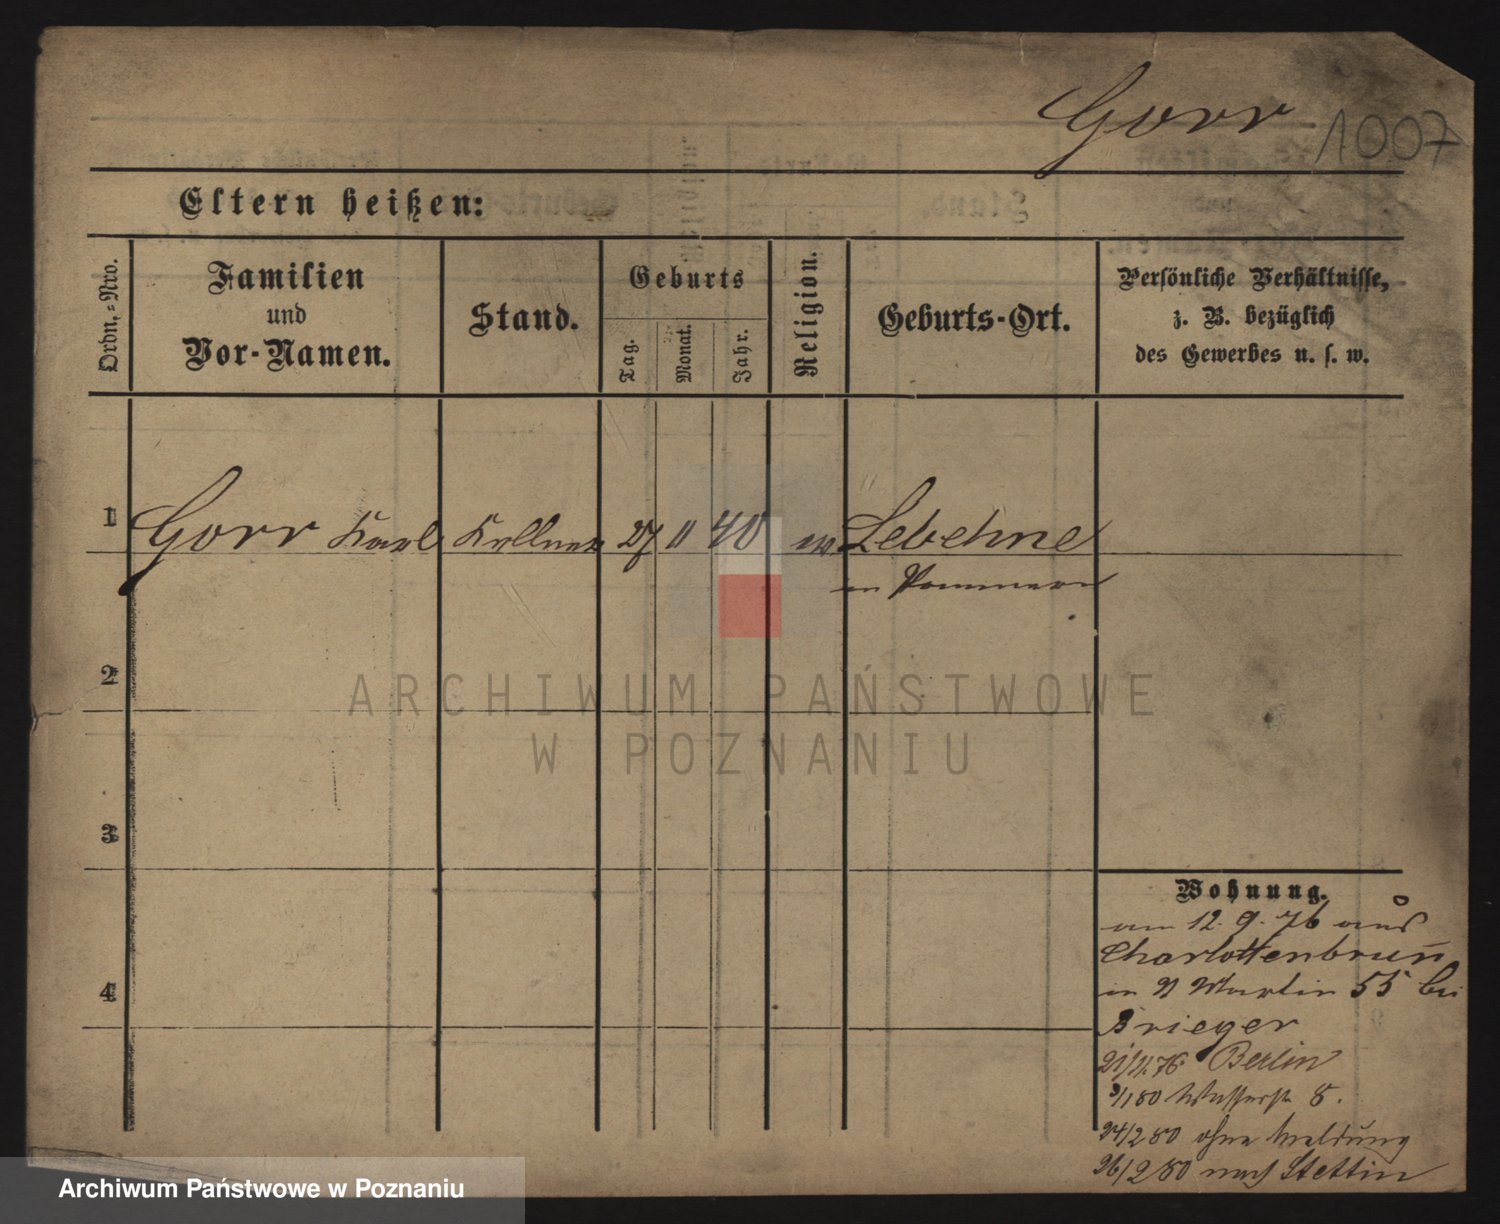 Gorr 1007
Eltern heißen:
Ordn.-Nro.
Familien
und
Vor-Namen.
Stand.
Geburts
Tag.
Monat.
Jahr.
Religion.
Geburts-Ort.
Persönliche Verhältnisse,
z. B. bezüglich
des Gewerbes u. s. w.
1 Gorr Karl Kellner 27 11 40 ev Lebehne
in Pommern
2
ARCHIWUM PAŃSTWOWE
W POZNANIU
3
4
Wohnung.
am 12. 9. 76 aus
Charlottenbrun̄
in St Martin 55 bei
Brieger
21/11.76 Berlin
3/1 80 Wasserstr 8.
24/2 80 ohne Meldung
26/2 80 nach Stettin
Archiwum Państwowe w Poznaniu